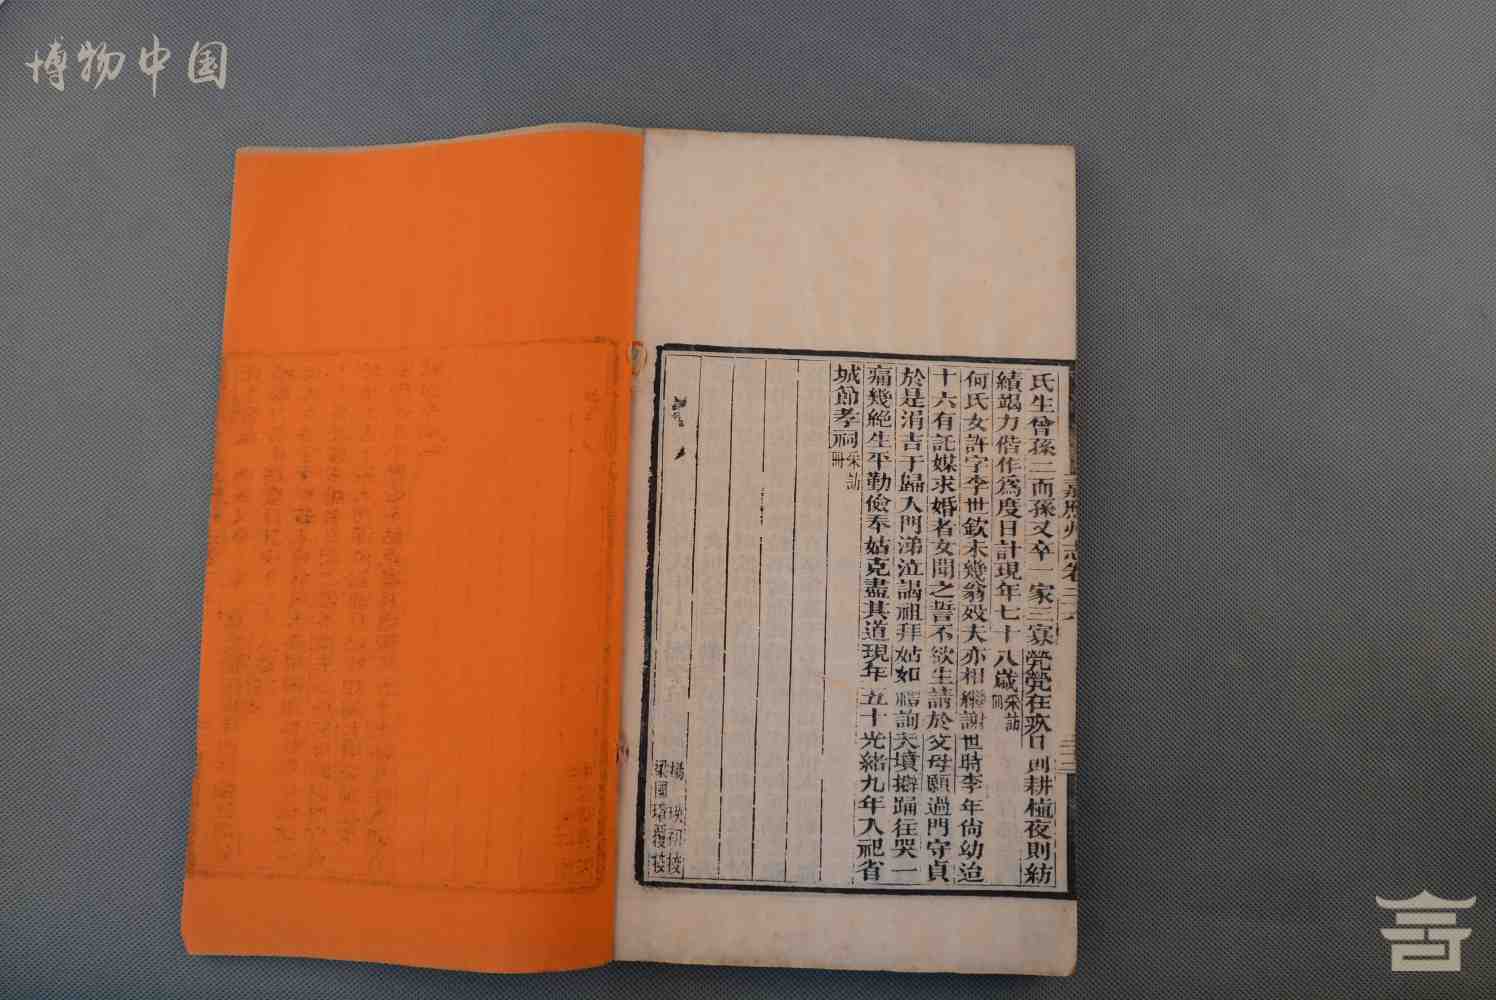 博物中国
氏生曾孫二而孫又卒一家三寡煢煢在疚日則耕植夜則紡
績竭力偕作為度日計現年七十八歲采訪冊
何氏女許字李世欽未幾翁歿夫亦相繼謝世時李年尚幼迨
十六有託媒求婚者女聞之誓不欲生請於父母願過門守貞
於是涓吉于歸入門涕泣謁祖拜姑如禮詢夫墳擗踊往哭一
痛幾絕生平勤儉奉姑克盡其道現年五十光緒九年入祀省
城節孝祠采訪冊
楊 初校
梁國 覆校